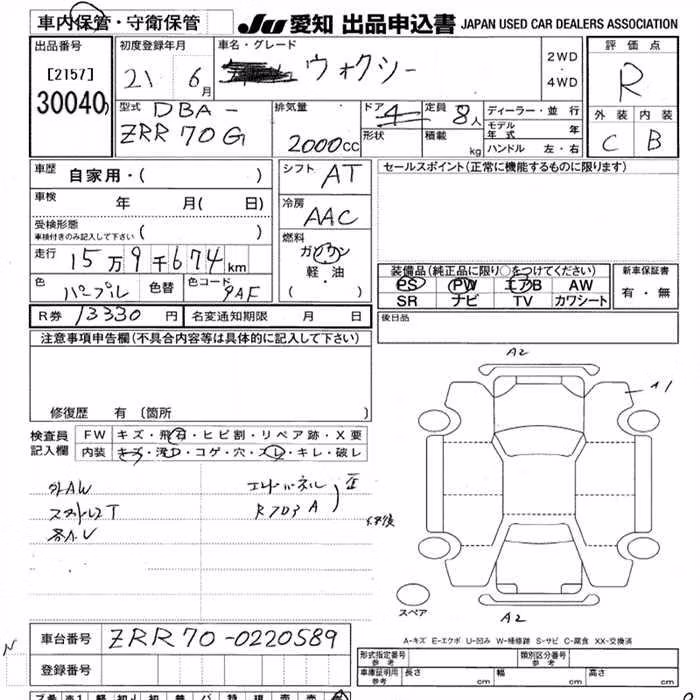 車内保管・守衛保管
JU 愛知 出品申込書 JAPAN USED CAR DEALERS ASSOCIATION
出品番号
[2157]
30040
初度登録年月
21 6月
車名・グレード
ヴォクシー
2WD
・
4WD
評価点
R
外装 内装
C B
型式 DBA-
ZRR70G
排気量
2000cc
ドア 4
形状
定員 8人
積載 kg
ディーラー・並 行
モデル年式 年
ハンドル 左・右
車歴 自家用・( )
車検 年 月( 日)
受検形態
車検付きのみ記入して下さい ( )
走行 15万9千674km
色 パープル 色替 色コード 9AF
シフト AT
冷房 AAC
燃料
ガソリン
軽・油
( ・ )
セールスポイント(正常に機能するものに限ります)
装備品(純正品に限り○をつけてください)
PS PW エアB AW
SR ナビ TV カワシート
新車保証書
有・無
後日品
R券 13330円 名変通知期限 月 日
注意事項申告欄(不具合内容等は具体的に記入して下さい)
修復歴 有(箇所 )
検査員
記入欄
FW キズ・飛石・ヒビ割・リペア跡・X要
内装 キズ・汚レ・コゲ・穴・スレ・キレ・破レ
外AW
スタットレスT
エンドパネル
A2
A1
スペア
A2
A-キズ E-エクボ U-凹み W-補修跡 S-サビ C-腐食 XX-交換済
車台番号 ZRR70-0220589
登録番号
N
形式指定番号
参考
類別区分番号
参考
車庫証明用
参考
長さ cm 幅 cm 高さ cm